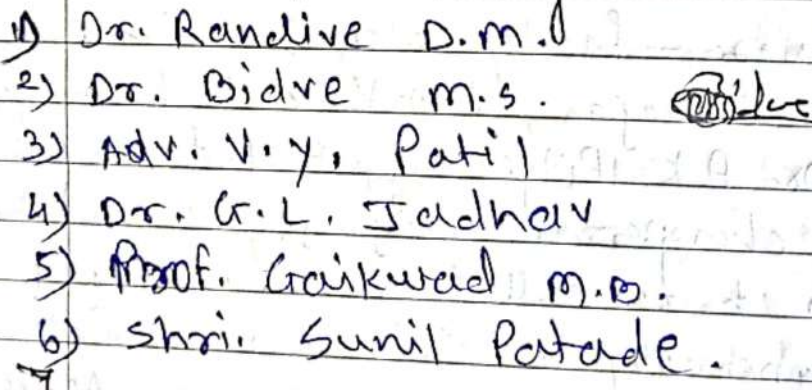 1) Dr. Randive D.M.
2) Dr. Bidve M.S.
3) Adv. V.Y. Patil
4) Dr. G.L. Jadhav
5) Prof. Gaikwad M.B.
6) Shri. Sunil Patade.
7